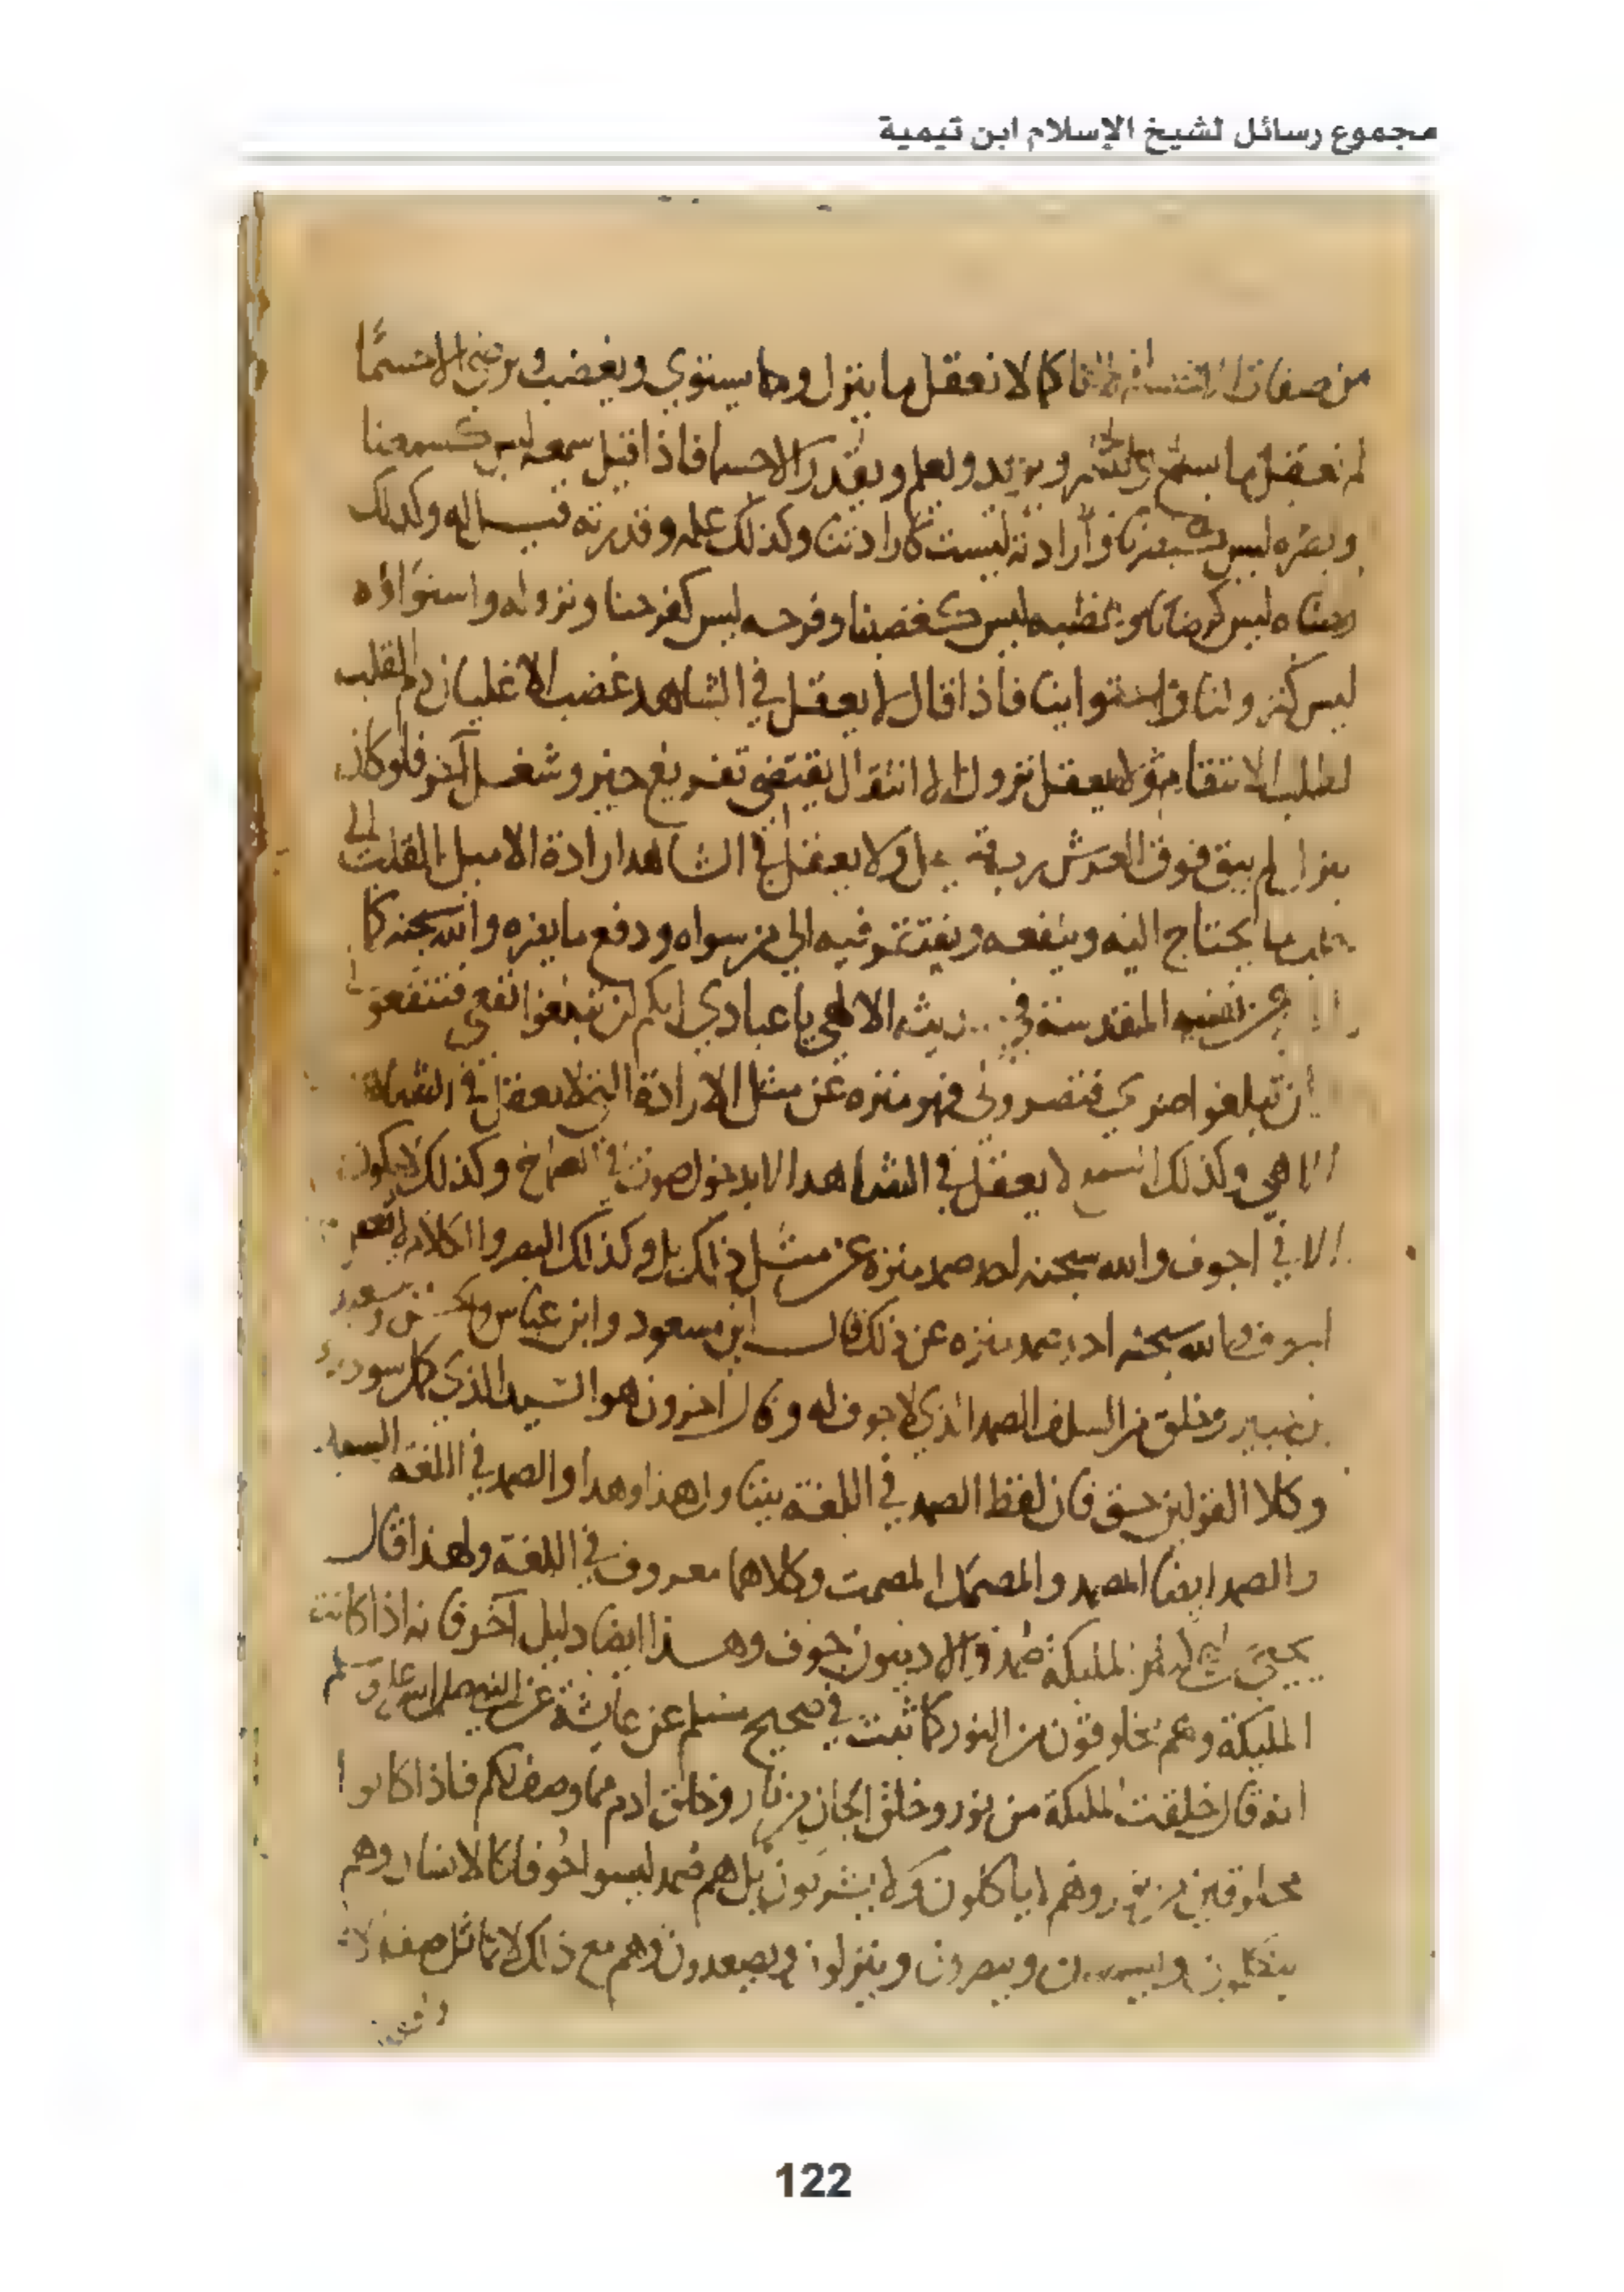 مجموع رسائل لشيخ الإسلام ابن تيمية
من صفات كما لا نعقل ما ينزل وما يستوي ويغضب ويرضى الا جسما
لم نعقل ما يسمع ويبصر ويريد ويعلم ويقدر الا جسما فاذا قيل سمعه ليس كسمعنا
وبصره ليس كبصرنا وارادته ليست كارادتنا وكذلك علمه وقدرته قيل له وكذلك
رضاه ليس كرضانا وغضبه ليس كغضبنا وفرحه ليس كفرحنا ونزوله واستواؤه
ليس كنزولنا واستوائنا فاذا قال لا يعقل في الشاهد غضب الا غليان دم القلب
لطلب الانتقام ولا يعقل نزول الا انتقال يقتضي تفريغ حيز وشغل آخر فلو كان
ينزل لم يبق فوق العرش رب قيل ولا يعقل في الشاهد ارادة الا ميل القلب الى
جلب ما يحتاج اليه وينفعه ويفتقر فيه الى من سواه ودفع ما يضره والله سبحنه كما
عن نفسه المقدسة في الالهي يا عبادي انكم لن تبلغوا نفعي فتنفعوني
ان تبلغوا ضري فتضروني فهو منزه عن مثل الارادة التي لا يعقل في الشاهد
الا هي وكذلك السمع لا يعقل في الشاهد الا بدخول صوت في الصماخ وكذلك لا يكون
الا في اجوف والله سبحنه احد صمد منزه عن مثل ذلك بل وكذلك البصر والكلام
اجوف والله سبحنه احد صمد منزه عن ذلك قال ابن مسعود وابن عباس والحسن وسعيد
بن جبير وخلق من السلف الصمد الذي لا جوف له وقال اخرون هو السيد الذي كمل سودده
وكلا القولين حق فان لفظ الصمد في اللغة يتناول هذا وهذا والصمد في اللغة السيد
والصمد ايضا المصمد والمصمد المصمت وكلاهما معروف في اللغة ولهذا قال
يحيى المليكة صمد والادميون جوف وهذا ايضا دليل آخر فانه اذا كانت
المليكة وهم مخلوقون من النور كما ثبت في صحيح مسلم عن عايشة عن النبي صلى الله عليه وسلم
انه قال خلقت المليكة من نور وخلق الجان من نار وخلق ادم مما وصف لكم فاذا كانوا
مخلوقين من نور وهم لا ياكلون ولا يشربون بل هم صمد ليسوا جوفا كالانسان وهم
يتكلمون ويسمعون ويبصرون وينزلون ويصعدون وهم مع ذلك لا تماثل صفاتهم
122